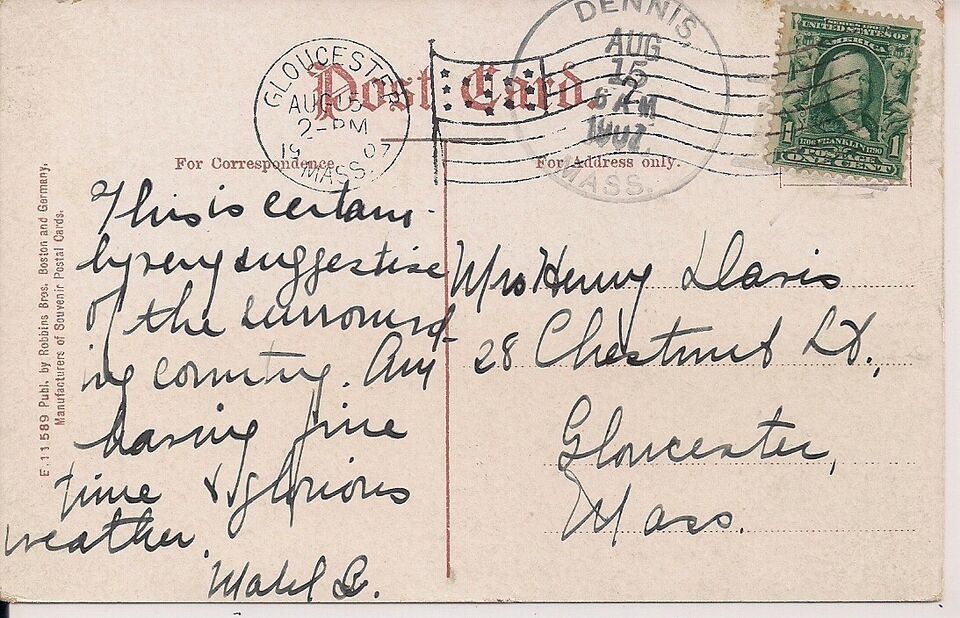 Post Card
GLOUCESTER
AUG 15
2-PM
19 07
MASS.
DENNIS
AUG
15
6 AM
1907
MASS.
SERIES 1902
UNITED STATES OF
AMERICA
1706 FRANKLIN 1790
1 POSTAGE 1
ONE CENT
For Correspondence
For Address only.
E.11589 Publ. by Robbins Bros. Boston and Germany.
Manufacturers of Souvenir Postal Cards.
This is certain-
ly very suggestive
of the surround-
ing country. Am
having fine
time & glorious
weather.
Mabel B.
Mrs Henry Davis
28 Chestnut St.,
Gloucester,
Mass.